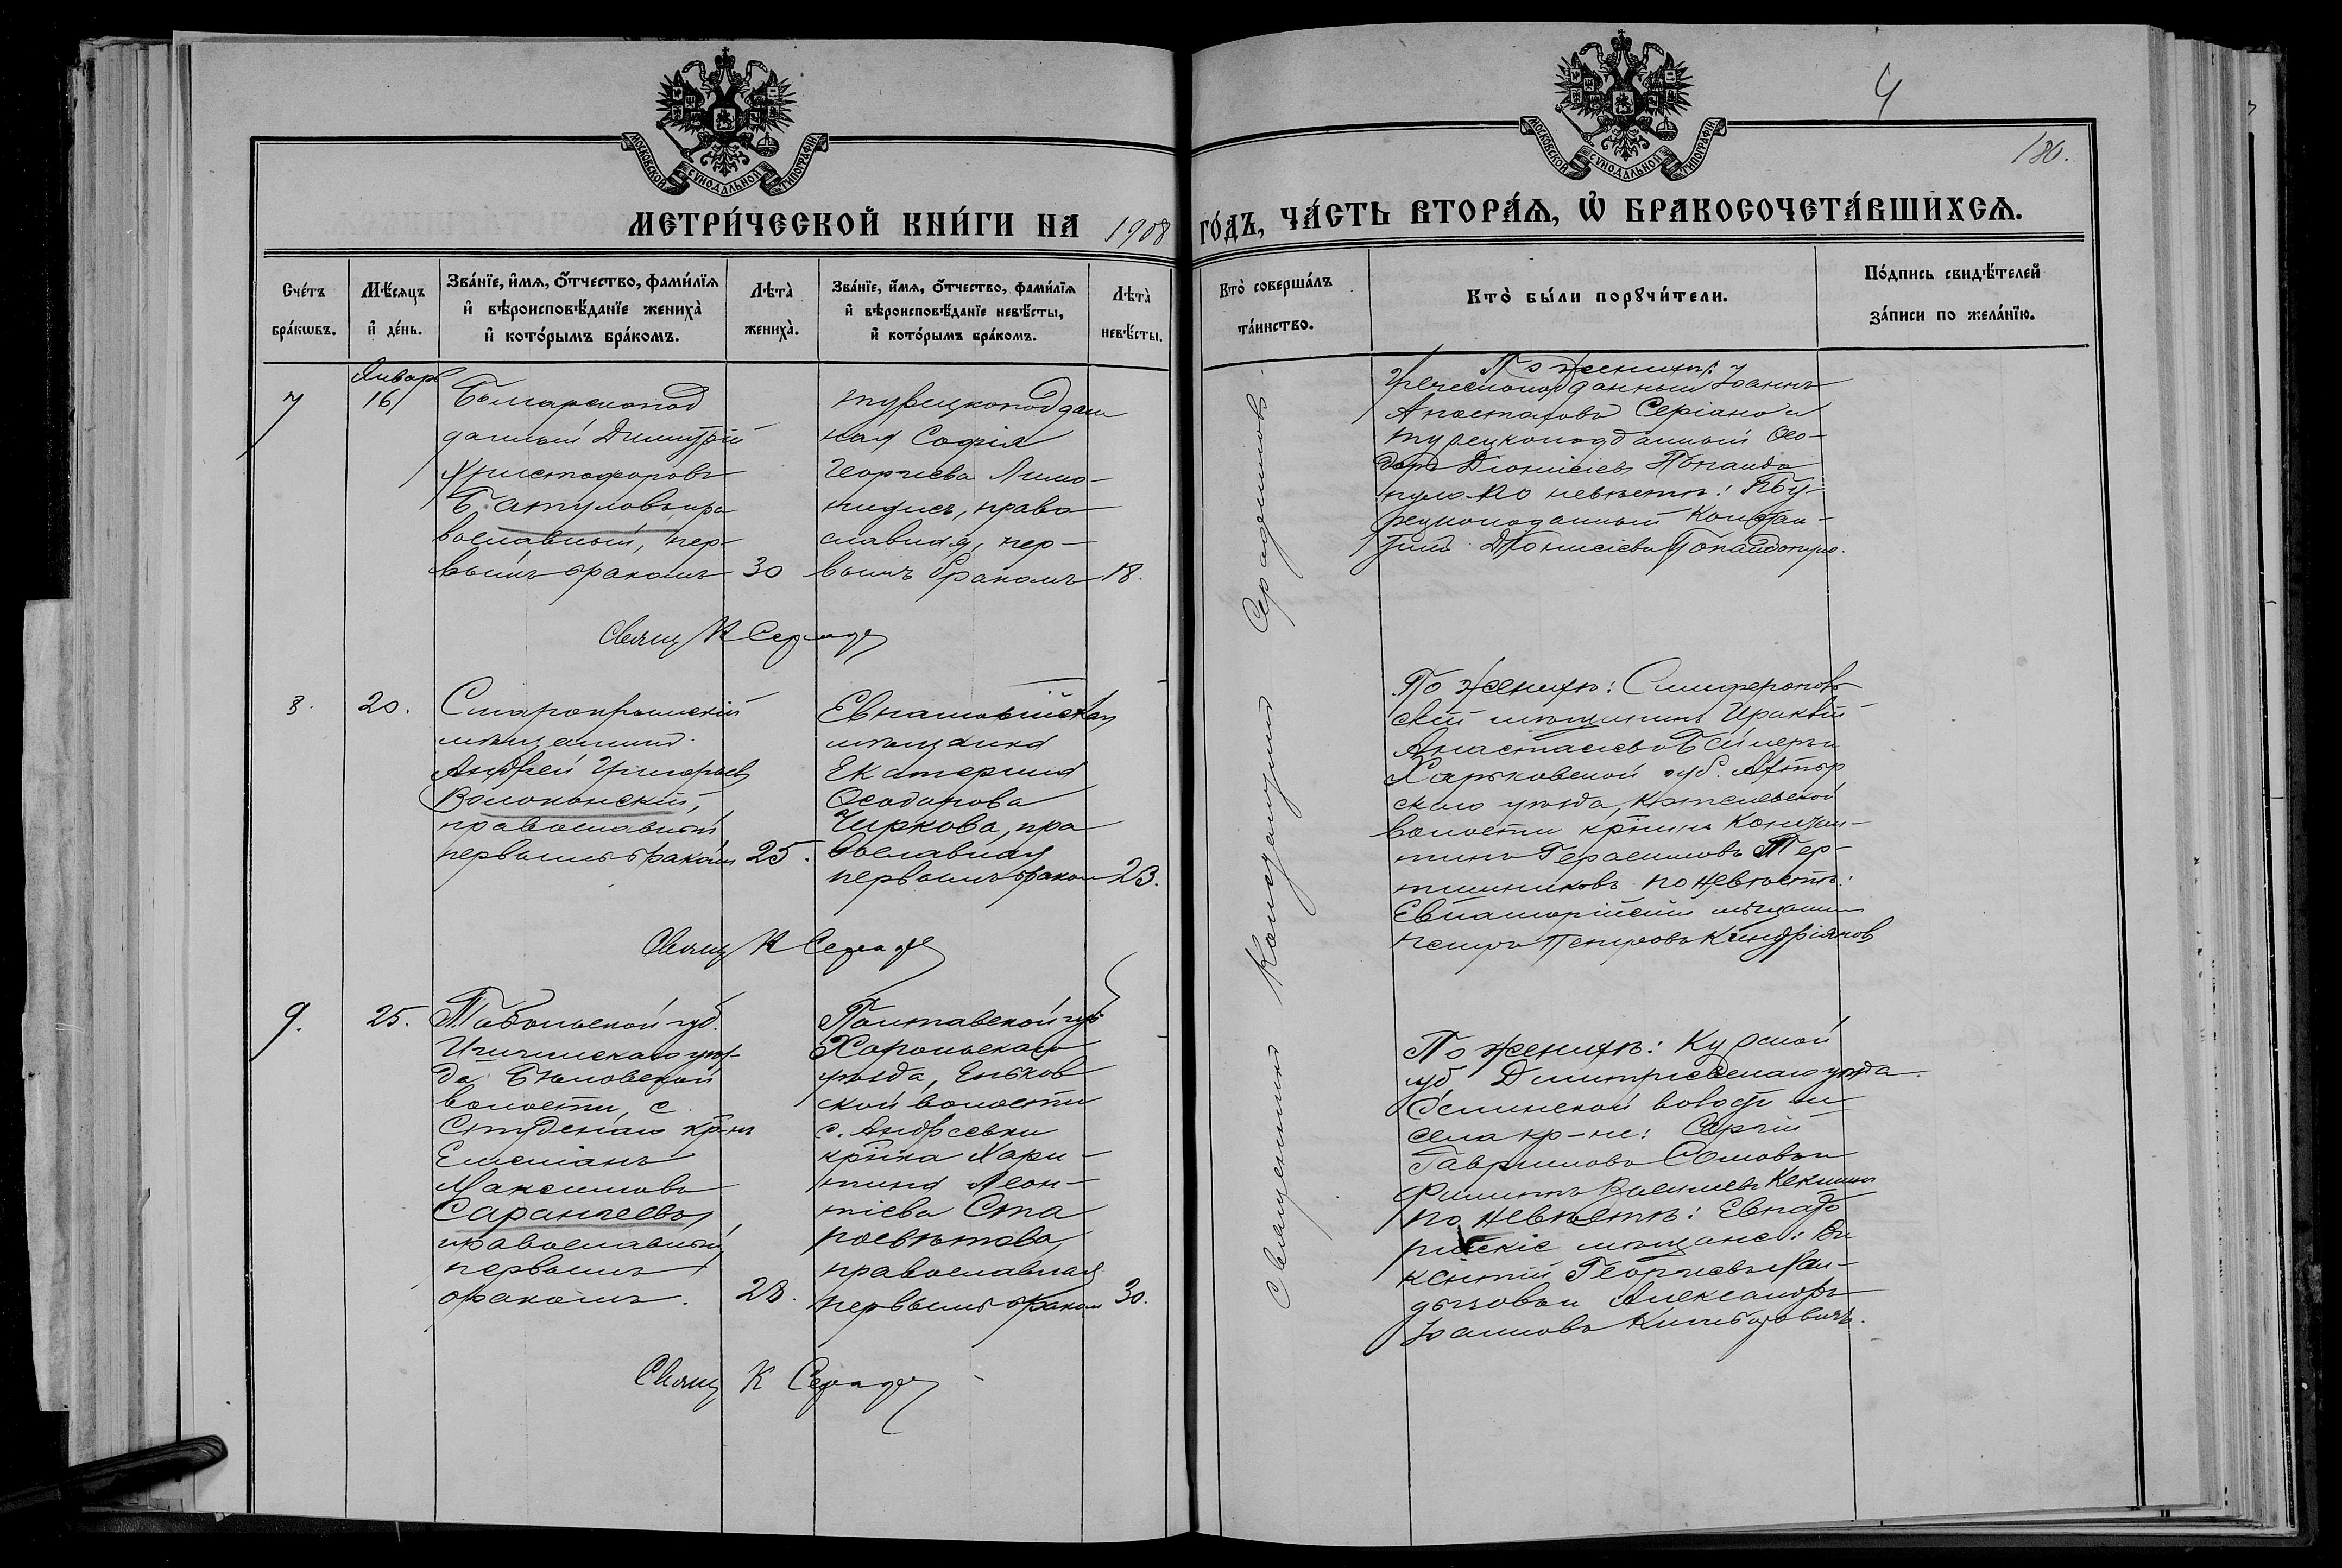 4
180.
МОСКОВСКОЙ СѴНОДАЛЬНОЙ ТИПОГРАФІИ.
МОСКОВСКОЙ СѴНОДАЛЬНОЙ ТИПОГРАФІИ.
МЕТРИ́ЧЕСКОЙ КНИ́ГИ НА 1908 ГО́ДЪ, ЧА́СТЬ ВТОРА́Я, Ѡ БРАКОСОЧЕТА́ВШИХСЯ.
Сче́тъ бра́кѡвъ.
Мѣ́сяцъ и҆ де́нь.
Зва́нїе, и҆́мя, ѻ҆́тчество, фами́лїя и҆ вѣроисповѣ́данїе жениха̀ и҆ кото́рымъ бра́комъ.
Лѣта̀ жениха̀.
Зва́нїе, и҆́мя, ѻ҆́тчество, фами́лїя и҆ вѣроисповѣ́данїе невѣ́сты, и҆ кото́рымъ бра́комъ.
Лѣта̀ невѣ́сты.
Кто̀ соверша́лъ та́инство.
Кто̀ бы́ли порꙋчи́тели.
По́дпись свидѣ́телей за́писи по жела́нїю.
7
Январь
16
Болгарскопод
данный Димитрій
Христофоровъ
Батуловъ, пра
вославный, пер-
вымъ бракомъ
30
турецкоподдан
ная Софія
Георгіева Лимо-
нидисъ, право
славная, пер-
вымъ бракомъ
18.
По женихѣ:
Греческоподданный Іоаннъ
Апостоловъ Серіано и
турецкоподданный Ѳео-
доръ Діонисіевъ
пуло. По невѣстѣ: Ту-
рецкоподданный Констан-
тинъ Діонисіевъ
Свящ К Серад
8.
20.
Старокрымскій
мѣщанинъ
Андрей Григорьев
Волоконскій,
православный
первымъ бракомъ
25.
Евпаторійская
мѣщанка
Екатерина
Ѳеодорова
Чиркова, пра
вославная
первымъ браком
23.
По женихѣ: Симферополь
скій мѣщанинъ Ираклій
Анастасіевъ
Харьковской губ. Ахтыр
скаго уѣзда, Котелевской
волости кр-нинъ Констан-
тинъ Герасимовъ Тер-
тишниковъ по невѣстѣ:
Евпаторійскій мѣщанин
Петръ Петровъ Киндріяков
Свящ К Серад
9.
25.
Тобольской губ.
Ишимскаго уѣз-
да
волости, с.
кр-нъ
Емеліанъ
Максимовъ
Сарангеевъ,
православный
первымъ
бракомъ.
28.
Полтавской губ
Хорольскаго
уѣзда, Еньков
ской волости
с. Андреевки
кр-нка Хари-
тина Леон-
тіева Ста
росвѣтова,
православная
первымъ браком
30.
По женихѣ: Курской
губ Дмитріевскаго уѣзда
села кр-не: Сергій
Гавриловъ Сомовъ и
Филиппъ Васильевъ
по невѣстѣ: Евпато
рійскіе мѣщане: Ви
кентій Георгіевъ
Александръ
Іоанновъ
Свящ К Серад
Священникъ Константинъ